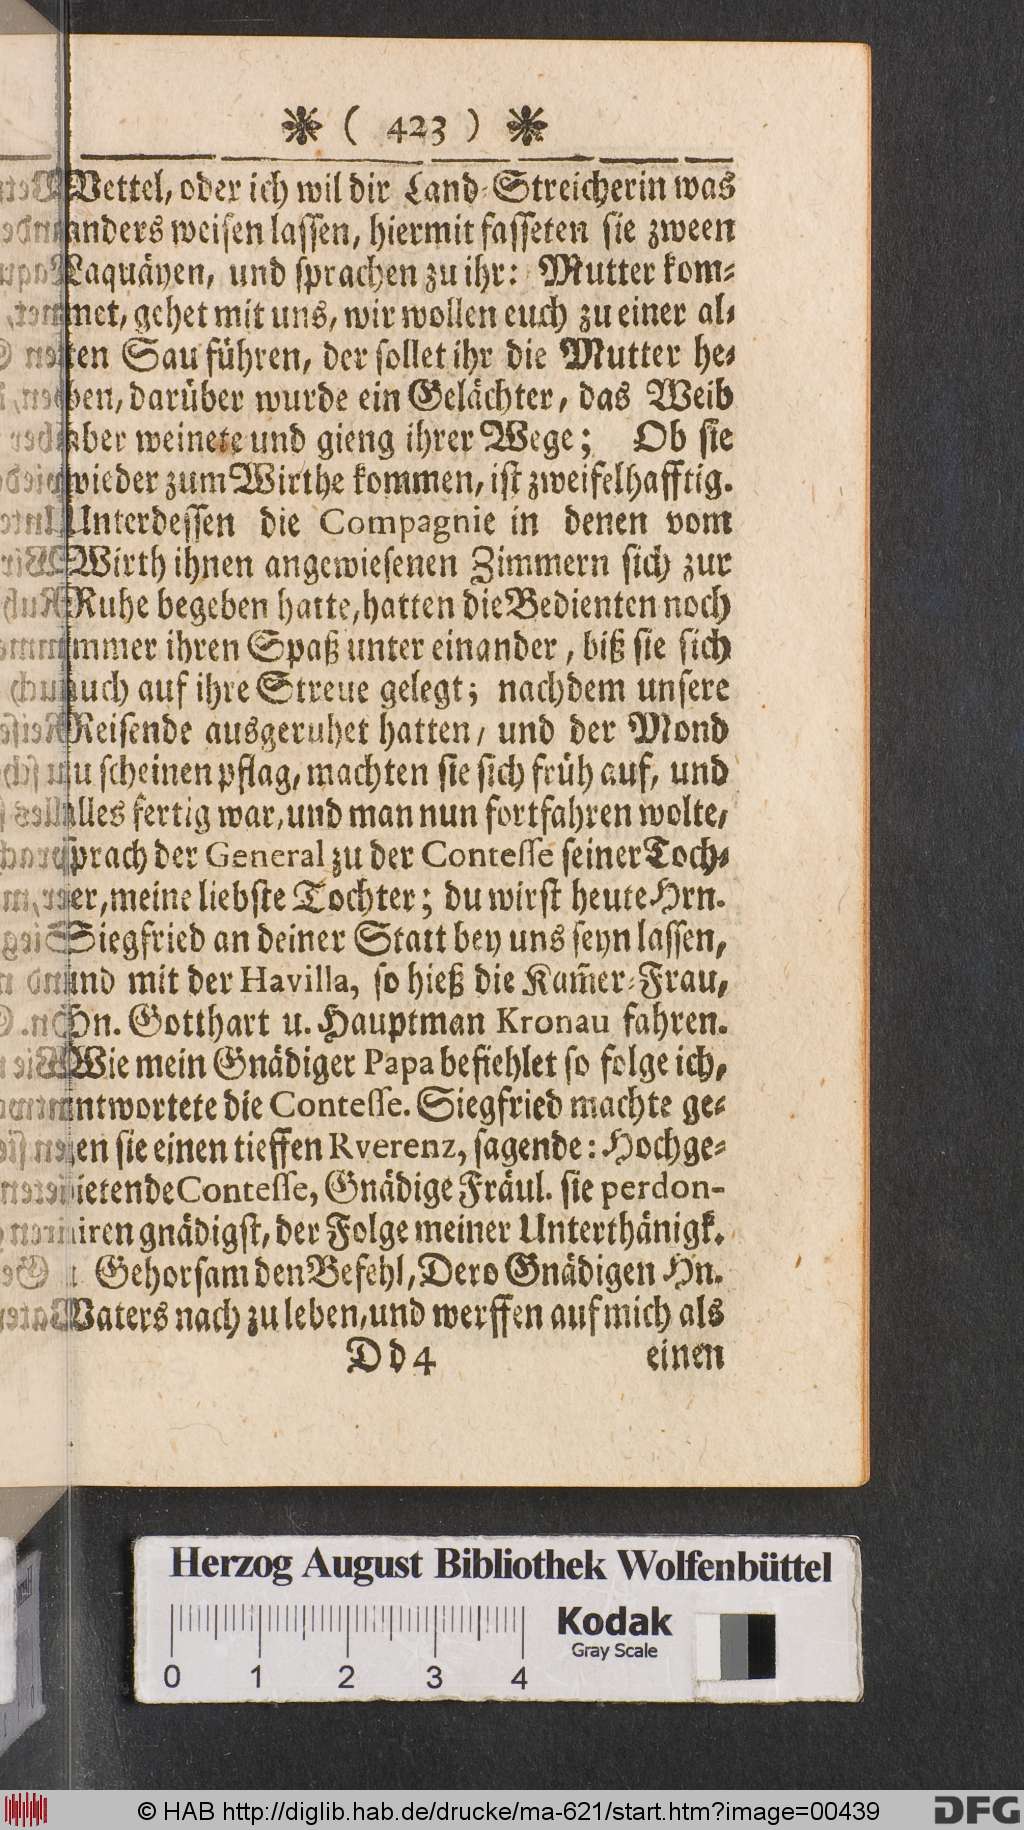 ❋ ( 423 ) ❋
Vettel, oder ich wil dir Land-Streicherin was
anders weisen lassen, hiermit fasseten sie zween
Laquäyen, und sprachen zu ihr: Mutter kom-
met, gehet mit uns, wir wollen euch zu einer al-
ten Sau führen, der sollet ihr die Mutter he-
ben, darüber wurde ein Gelächter, das Weib
aber weinete und gieng ihrer Wege; Ob sie
wieder zum Wirthe kommen, ist zweifelhafftig.
Unterdessen die Compagnie in denen vom
Wirth ihnen angewiesenen Zimmern sich zur
Ruhe begeben hatte, hatten die Bedienten noch
immer ihren Spaß unter einander, biß sie sich
auch auf ihre Streue gelegt; nachdem unsere
Reisende ausgeruhet hatten, und der Mond
zu scheinen pflag, machten sie sich früh auf, und
alles fertig war, und man nun fortfahren wolte,
sprach der General zu der Contesse seiner Toch-
ter, meine liebste Tochter; du wirst heute Hrn.
Siegfried an deiner Statt bey uns seyn lassen,
und mit der Havilla, so hieß die Kam̃er-Frau,
Hn. Gotthart u. Hauptman Kronau fahren.
Wie mein Gnädiger Papa befiehlet so folge ich,
antwortete die Contesse. Siegfried machte ge-
gen sie einen tieffen Rverenz, sagende: Hochge-
bietende Contesse, Gnädige Fräul. sie perdon-
niren gnädigst, der Folge meiner Unterthänigk.
Gehorsam den Befehl, Dero Gnädigen Hn.
Vaters nach zu leben, und werffen auf mich als
Dd 4 einen
Herzog August Bibliothek Wolfenbüttel
Kodak
Gray Scale
0 1 2 3 4
© HAB http://diglib.hab.de/drucke/ma-621/start.htm?image=00439
DFG